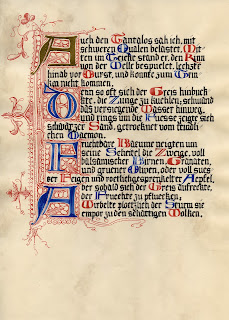 Auch den Tantalos sah ich, mit
schweren Qualen belastet. Mit-
ten im Teiche stand er, den Kinn
von der Welle bespuelet, lechzte
hinab vor Durst, und konnte zum Trin-
ken nicht kommen.
Denn so oft sich der Greis hinbuck-
kte, die Zunge zu kuehlen; schwand
das versiegende Wasser hinweg,
und rings um die Fuesse zeigte sich
schwarzer Sand, getrocknet vom feindli-
chen Daemon.
Fruchtbare Baeume neigten um
seine Scheitel die Zweige, voll
balsamischer Birnen, Granaten,
und gruener Oliven, oder voll sues-
ser Feigen und roethlichgesprenkelter Aepfel.
Aber sobald sich der Greis aufreckte,
der Fruechte zu pfluecken;
Wirbelte ploetzlich der Sturm sie
empor zu den schattigen Wolken.